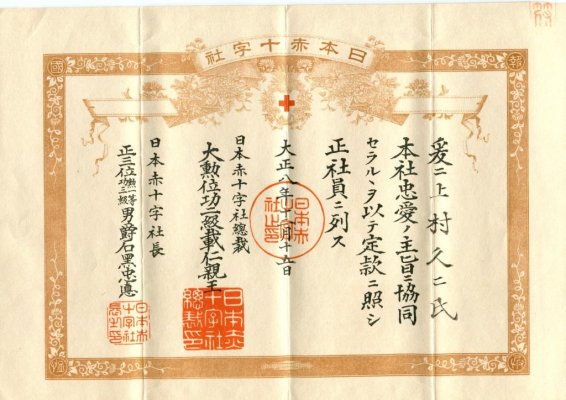 日本赤十字社
爰ニ上村久二氏
本社忠愛ノ主旨ニ協同
セラルヽヲ以テ定款ニ照シ
正社員ニ列ス
大正八年十二月十五日
日本赤十字社總裁
大勲位功二級載仁親王
日本赤十字社長
正三位勲一等功三級男爵石黑忠悳
日本赤十字社總裁印